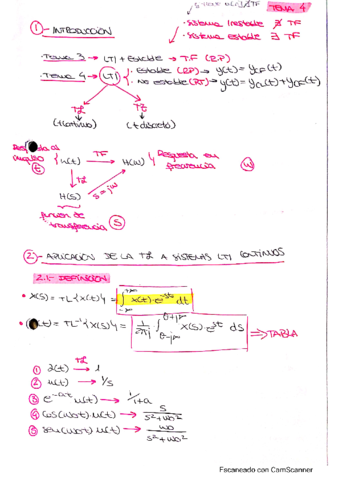 TEMA 4
·Sistema Inestable ∄ TF
·Sistema estable ∃ TF
① - INTRODUCCIÓN
·Tema 3 → LTI + Estable → T.F (RP)
·Tema 4 → LTI { · Estable (RP) → y(t) = yCF(t)
· No estable (RT) → y(t) = yCL(t) + yCF(t)
TL
(t continuo)
TZ
(t discreto)
impulso { h(t) → TF → H(ω) } Respuesta en frecuencia
(t)
(ω)
↓ TL
s = jω
H(s)
función de transferencia (S)
② - APLICACIÓN DE LA TL A SISTEMAS LTI CONTINUOS
2.1- DEFINICIÓN
· X(s) = TL{x(t)} = ∫_{-∞}^{+∞} x(t)·e^{-st} dt
(t) = TL⁻¹{X(s)} = 1/2πj ∫_{σ-j∞}^{σ+j∞} X(s)·e^{st} ds ⇒ TABLA
TL
① δ(t) → 1
② u(t) → 1/s
③ e^{-at} u(t) → 1/s+a
④ cos(ω₀t)·u(t) → s/s²+ω₀²
⑤ sen(ω₀t)·u(t) → ω₀/s²+ω₀²
Escaneado con CamScanner